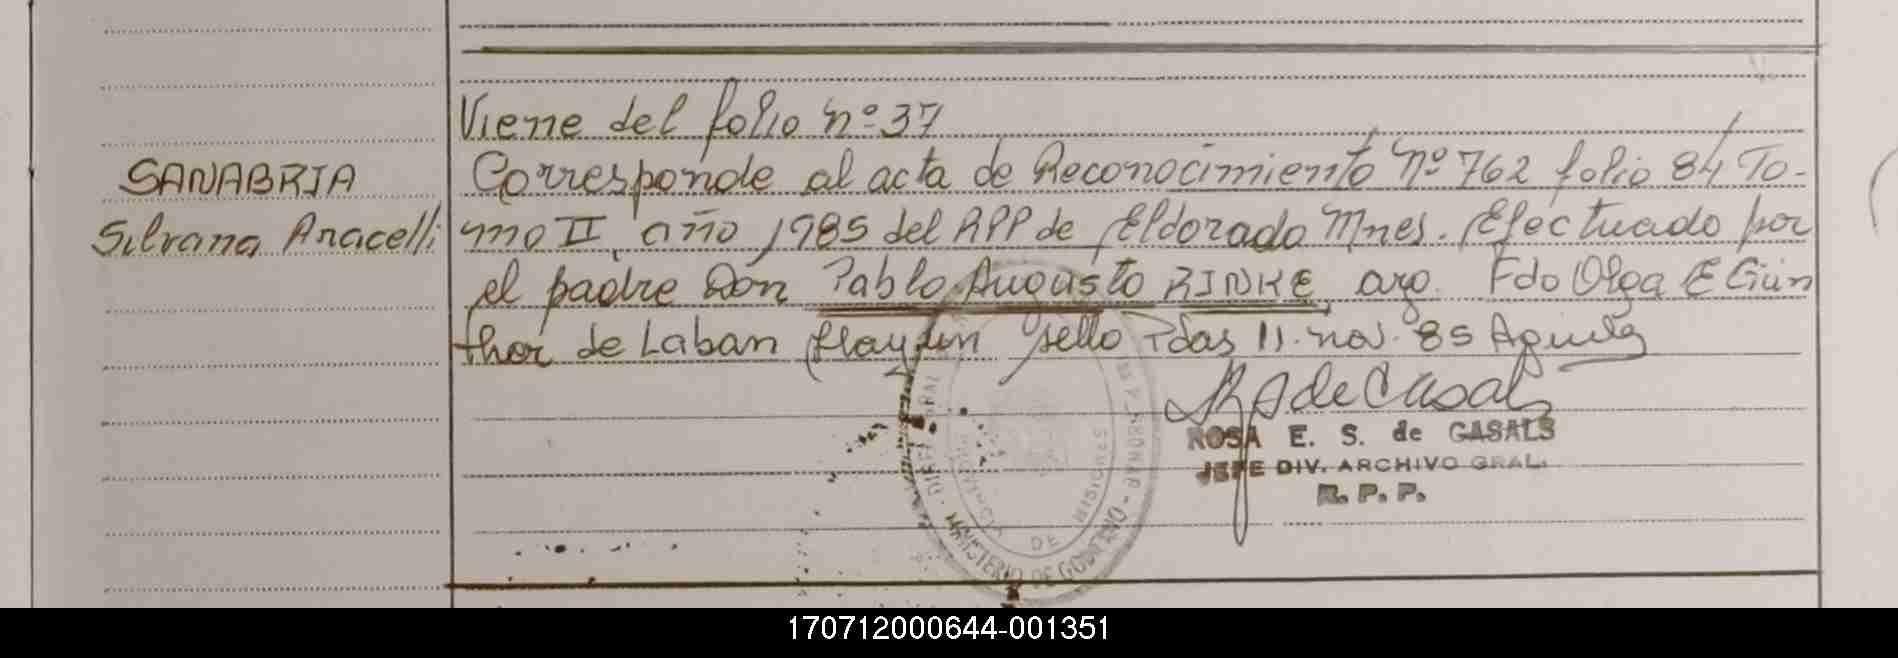 Viene del folio nº 37
SANABRIA
Silvana Aracelli
Corresponde al acta de Reconocimiento Nº 762 folio 84 To-
mo II año 1985 del RPP de Eldorado Mnes. Efectuado por
el padre Don Pablo Augusto RINKE, arg. Fdo Olga E Gün
ther de Laban Hay un sello Pdas 11. nov. 85
ROSA E. S. de CASALS
JEFE DIV. ARCHIVO GRAL.
R. P. P.
MINISTERIO DE GOBIERNO
DE MISIONES
170712000644-001351